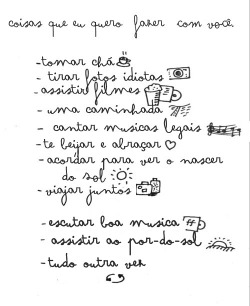 coisas que eu quero fazer com você.
-tomar chá
- tirar fotos idiotas
- assistir filmes
- uma caminhada
- cantar musicas legais
-te beijar e abraçar
- acordar para ver o nascer
do sol
- viajar juntos
- escutar boa musica
- assistir ao por-do-sol
-tudo outra vez